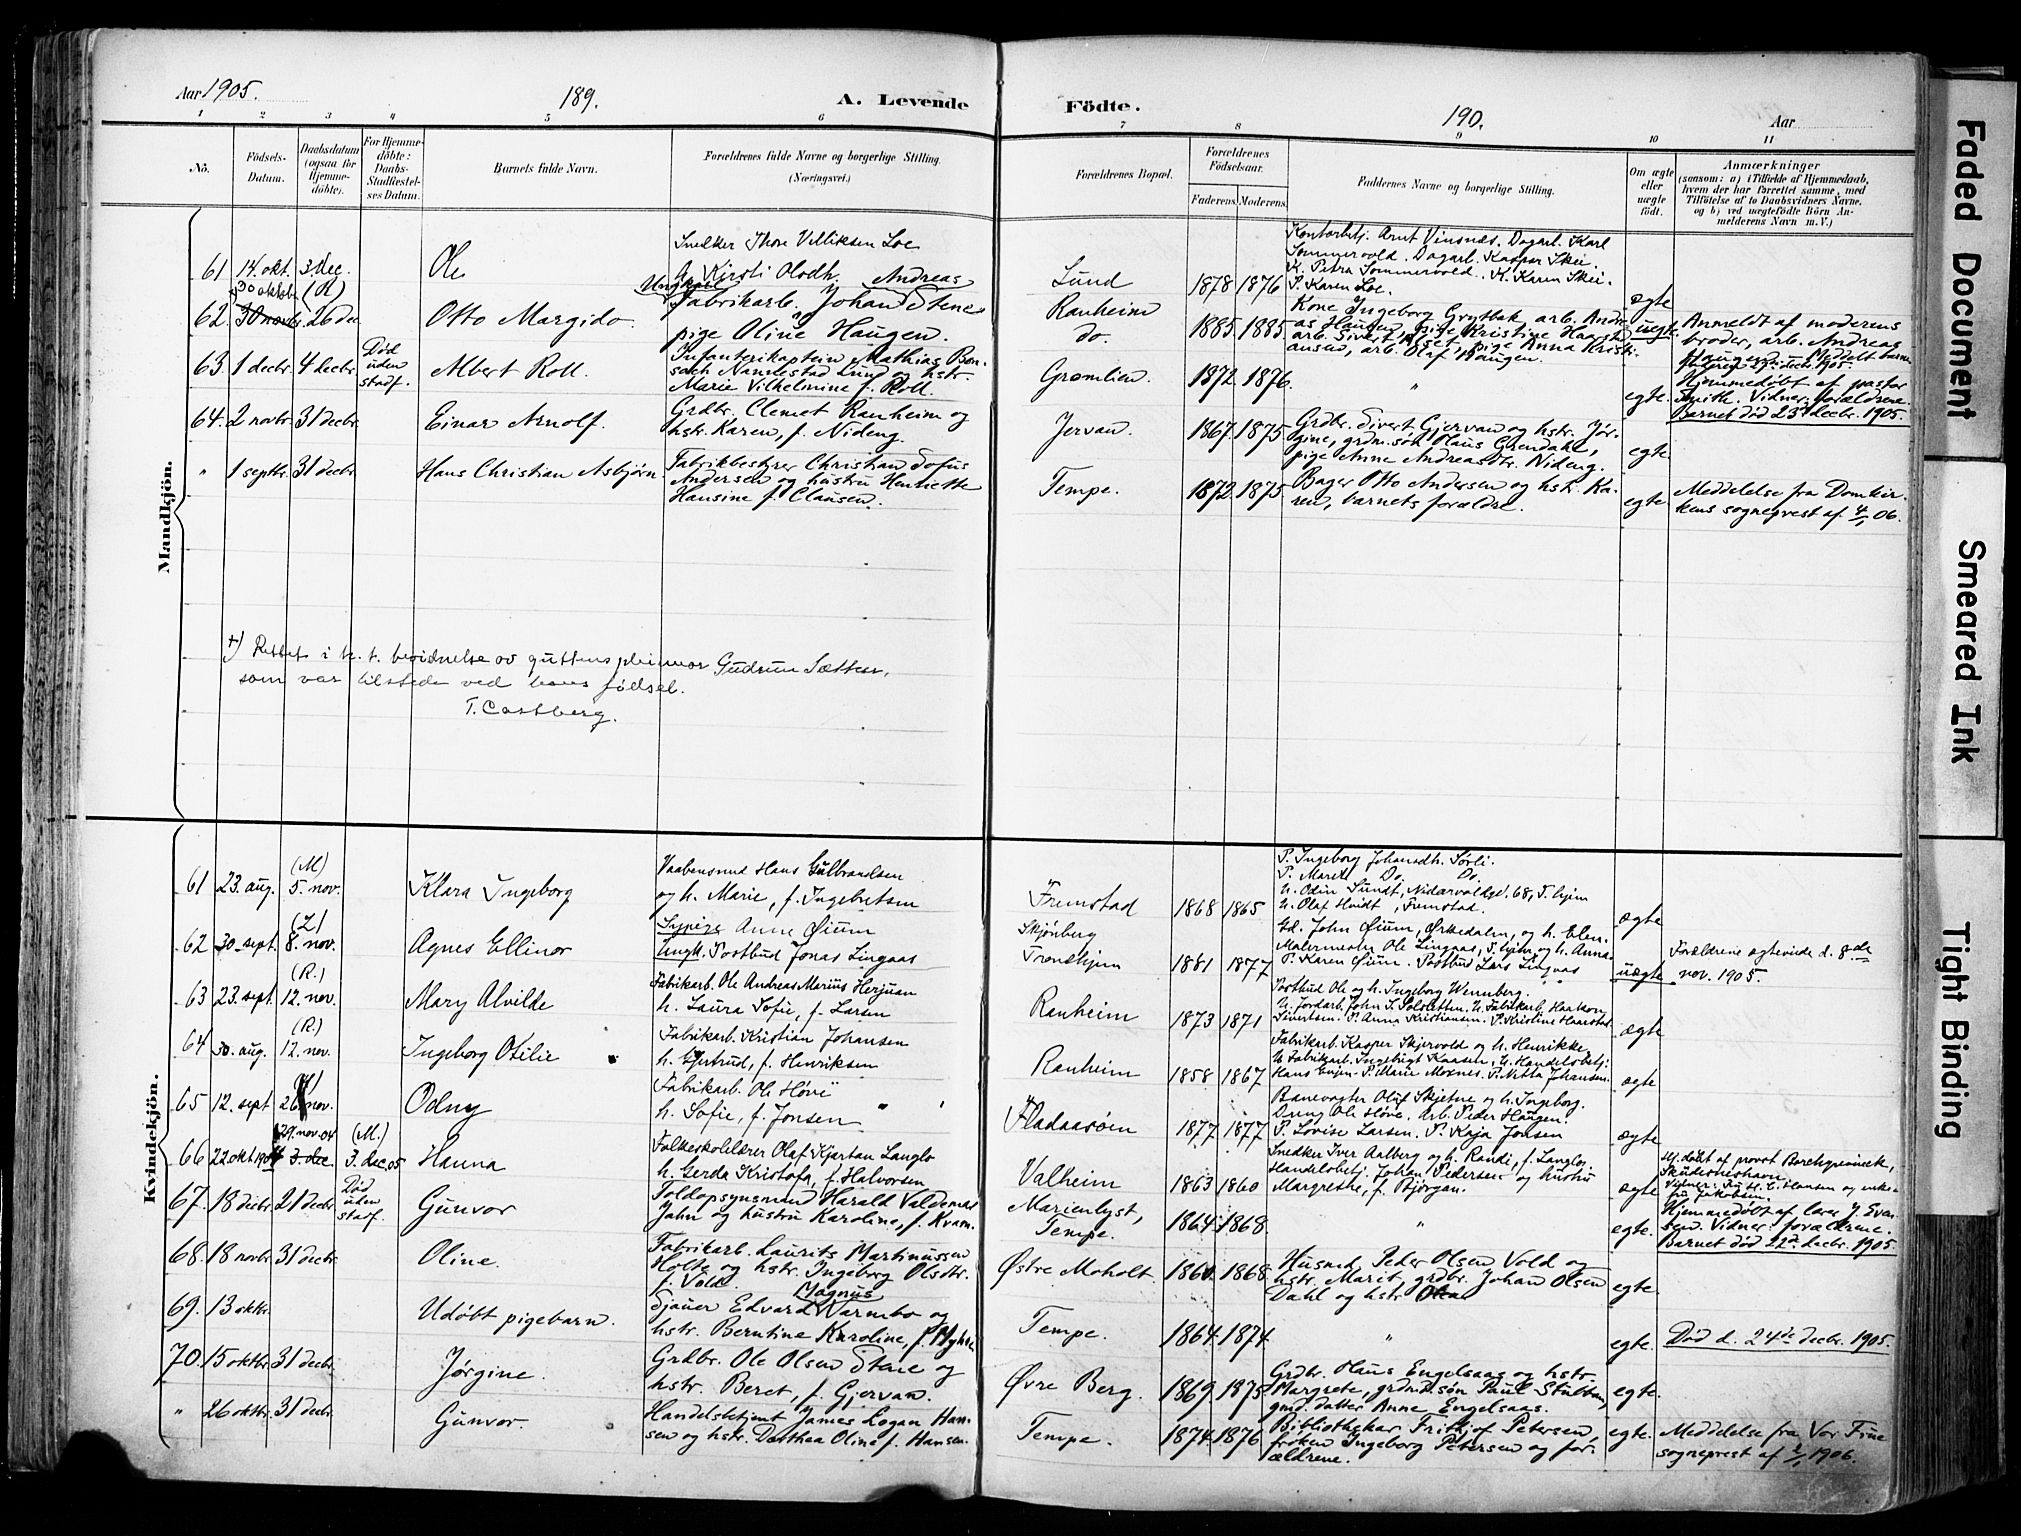 Aar 1905.
189.
A. Levende
Födte.
190.
Aar
1 2 3 4 5 6 7 8 9 10 11
No.
Födsels-Datum.
Daabsdatum (ogsaa for Hjemme-döbte).
For Hjemme-döbte: Daabs-Stadfæstel-ses Datum.
Barnets fulde Navn.
Forældrenes fulde Navne og borgerlige Stilling. (Næringsvei.)
Forældrenes Bopæl.
Forældrenes Födselsaar.
Faderens. Moderens.
Faddernes Navne og borgerlige Stilling.
Om ægte eller uægte födt.
Anmærkninger
(saasom: a) i Tilfælde af Hjemmedaab,
hvem der har forrettet samme, med
Tilföielse af to Daabsvidners Navne,
og b) ved uægtefödte Börn An-
melderens Navn m.V.)
Mandkjön.
61 14. okt. 3. dec. (R)
Ole
Snedker Thore Villiksen Loe
h. Kirsti Olsdtr.
Lund
1878 1876
Kontorbetj. Arnt Vinsnæs. Dagarb. Karl
Sommervold. Dagarb. Kasper Skei.
K. Petra Sommervold. K. Karen Skei.
P. Karen Loe.
ægte
62. 30 oktobr. 30 novbr. 26 dec
Otto Margido.
Ungkarl Fabrikarb. Johan Andreas Stene
pige Oline Haugen.
Ranheim
do.
1885 1885
Kone Ingeborg Grytbak, arb. Andre-
as Haugen, pige Kristine Haarst
arb. Sivert Moset, pige Anna Kristi-
ansen, arb. Olaf Haugen.
uegte
Anmeldt af moderens
broder, arb. Andreas
Haugen.
63. 1 decbr. 4 decbr.
Död uden stadf.
Albert Roll.
Infanterikaptein Mathias Bon-
sach Nannestad Lund og hstr.
Marie Vilhelmine f. Roll.
Gromlien.
1872. 1876.
"
egte.
Hjemmedöbt af pastor
Smith. Vidner: forældrene.
Barnet död 23de decbr. 1905.
64. 2 novbr. 31 decbr.
Einar Arnolf.
Grdbr. Clemet Ranheim og
hstr. Karen, f. Nideng.
Jervan.
1867. 1875
Grdbr. Sivert Gjervan og hstr. Jör-
gine, grdm.sön Claus Grendahl,
pige Anne Andreasdtr. Nideng.
egte
" 1 septbr. 31 decbr.
Hans Christian Asbjörn.
Fabrikbestyrer Christian Sofus
Andersen og hustru Henriette
Hansine f. Clausen.
Tempe.
1872 1875
Bager Otto Andersen og hstr. Ka-
ren, barnets forældre.
egte
Meddelelse fra Domkir-
kens sogneprest af 4/1 06.
+) Rettet i h. t. bevidnelse av guttens pleiemor Gudrun Sætter,
som var tilstede ved hans födsel.
T. Castberg.
Kvindekjön.
61 23. aug. (M) 5. nov.
Klara Ingeborg
Vaabensmed Hans Gulbrandsen
og h. Marie, f. Ingebretsen
Fremstad
1868 1865
P. Ingeborg Johansdtr. Sörli.
P. Marete Do. Do.
U. Odin Sundt, Nidarvoldgd. 68, T.hjem
U. Olaf Hvidt, Fremstad.
ægte
62 30. sept. (L) 8. nov.
Agnes Ellinor
Sypige Anna Öium
Ungk. Postbud Jonas Lingaas
Skjönberg
Trondhjem
1881 1877
Gd. John Öium, Orkedalen, og h. Elen.
Malermester Ole Lingaas, T.hjem og h. Anna.
P. Karen Öium. Postbud Lars Lingaas
uægte
Forældrene ægteviede d. 8de
nov. 1905.
63 23. sept. (R.) 12. nov.
Mary Alvilde
Fabrikarb. Ole Andreas Marius Herjuan
h. Laura Sofie, f. Larsen
Ranheim
1873 1871
Postbud Ole og h. Ingeborg Wennberg.
Sivertsen. P. Anna Kristiansen. P. Kristine Haarstad.
ægte
64 30. aug. (R.) 12. nov.
Ingeborg Otilie
Fabrikarb. Kristian Johansen
h. Gjertrud, f. Henriksen
Ranheim
1858 1867
Fabrikarb. Kasper Skjervold og h. Henrikke
U. Fabrikarb. Ingebrigt Kaasen, U. Handelsbetj.
Hans Evjen. P. Marie Moxnes. P. Nitta Johansen.
ægte
65 12. sept 26 nov.
Odny
Fabrikarb. Ole Höve
h. Sofie, f. Jonsen
Fladaasöen
1877 1877
Banevogter Oluf Skjetne og h. Ingeborg.
Dreng Ole Höve. Arb. Peder Haugen.
P. Lovise Larsen. P. Kaja Jonsen
ægte
66 22. okt 1904 29. nov. 04 3. dec. (M.) 3. dec. 05
Hanna
Folkeskolelærer Olaf Kjartan Langlo
h. Gerda Kristofa, f. Halvorsen
Valheim
1863 1860
Snedker Iver Aalberg og h. Randi, f. Langlo.
Handelsbetj. Johan Pedersen og hustru
Margrethe, f. Bjørgan.
ægte
Hj.döbt af provst Borchgrevinck,
Skudesneshavn.
Vidner: Fru H. C. Hansen og enke-
fru Jakobsen.
67. 18 decbr. 21 decbr.
Död uden stadf.
Gunvor
Toldopsynsmand Harald Valdemar
Jahn og hustru Karoline, f. Kvam.
Marienlyst,
Tempe.
1864. 1868.
"
egte.
Hjemmedöbt af lærer J. Even-
sen. Vidner: forældrene.
Barnet död 22de decbr. 1905.
68. 18 novbr. 31 decbr.
Oline.
Fabrikarb. Laurits Martinussen
Holte og hstr. Ingeborg Olsdtr.
f. Vold.
Østre Moholt.
1860. 1868.
Husmd. Peder Olsen Vold og
hstr. Marit, grdbr. Johan Olsen
Dahl og hstr. Olea
egte.
69. 13 oktbr.
Udöbt pigebarn.
Sjauer Edvard Magnus Warmbo og
hstr. Berntine Karoline, f. Myhre.
Tempe.
1864. 1874.
"
egte.
Död d. 24de decbr. 1905.
70. 15 oktbr. 31 decbr.
Jørgine.
Grdbr. Ole Olsen Stene og
hstr. Beret, f. Gjervan.
Øvre Berg.
1869. 1875.
Grdbr. Claus Engelsaas og hstr.
Margrete, grdmdsön Paul Stubban,
gmd. datter Anne Engelsaas.
egte.
" 26 oktbr. 31 decbr.
Gunvor.
Handelsbetjent James Logan Han-
sen og hstr. Dorthea Oline f. Hansen.
Tempe.
1874. 1876
Bibliothekar Frithjof Petersen,
fröken Ingeborg Petersen og for-
ældrene.
egte.
Meddelelse fra Vor Frue
sogneprest af 2/1 1906.
Faded Document
Smeared Ink
Tight Binding